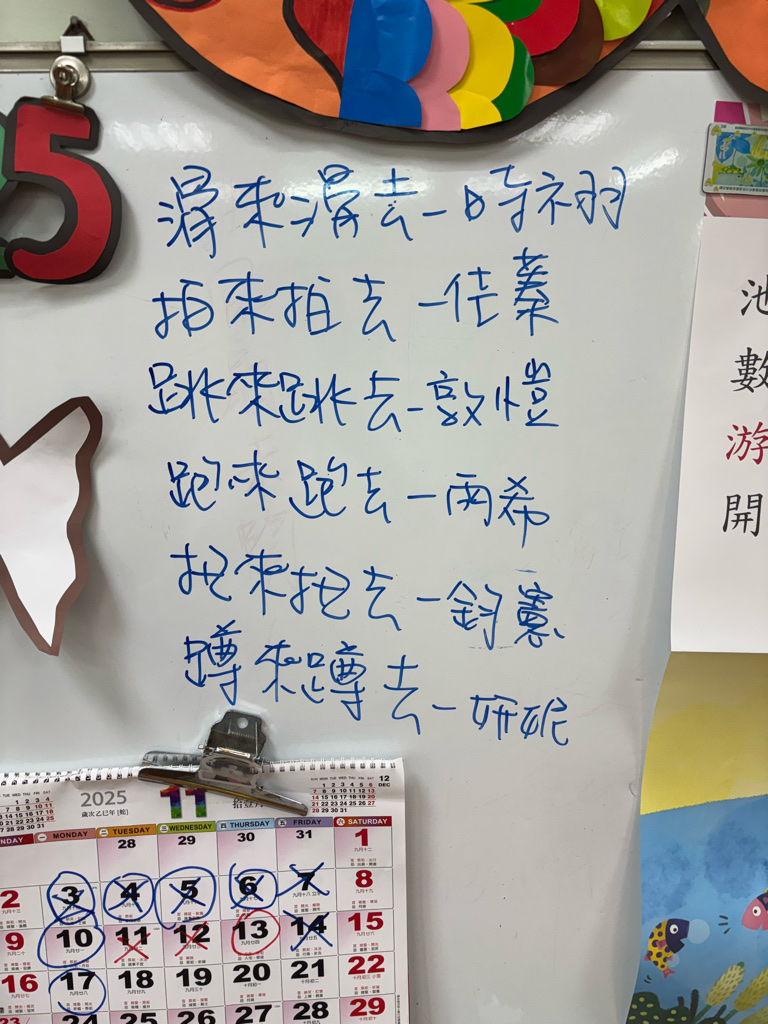 5
滑來滑去－時禾羽
拍來拍去－佳蓁
跳來跳去－敦愷
跑來跑去－雨希
抱來抱去－鈞憲
蹲來蹲去－妍妮
池
數
游
開
2025
歲次乙巳年[蛇]
11
12
DEC
MONDAY TUESDAY WEDNESDAY THURSDAY FRIDAY SATURDAY
28 29 30 31 1
2 3 4 5 6 7 8
9 10 11 12 13 14 15
16 17 18 19 20 21 22
23 24 25 26 27 28 29